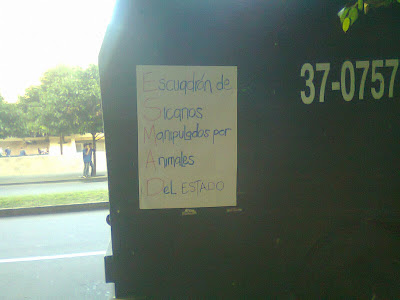 Escuadrón de
Sicarios
Manipulados por
Animales
DEL ESTADO
37-0757